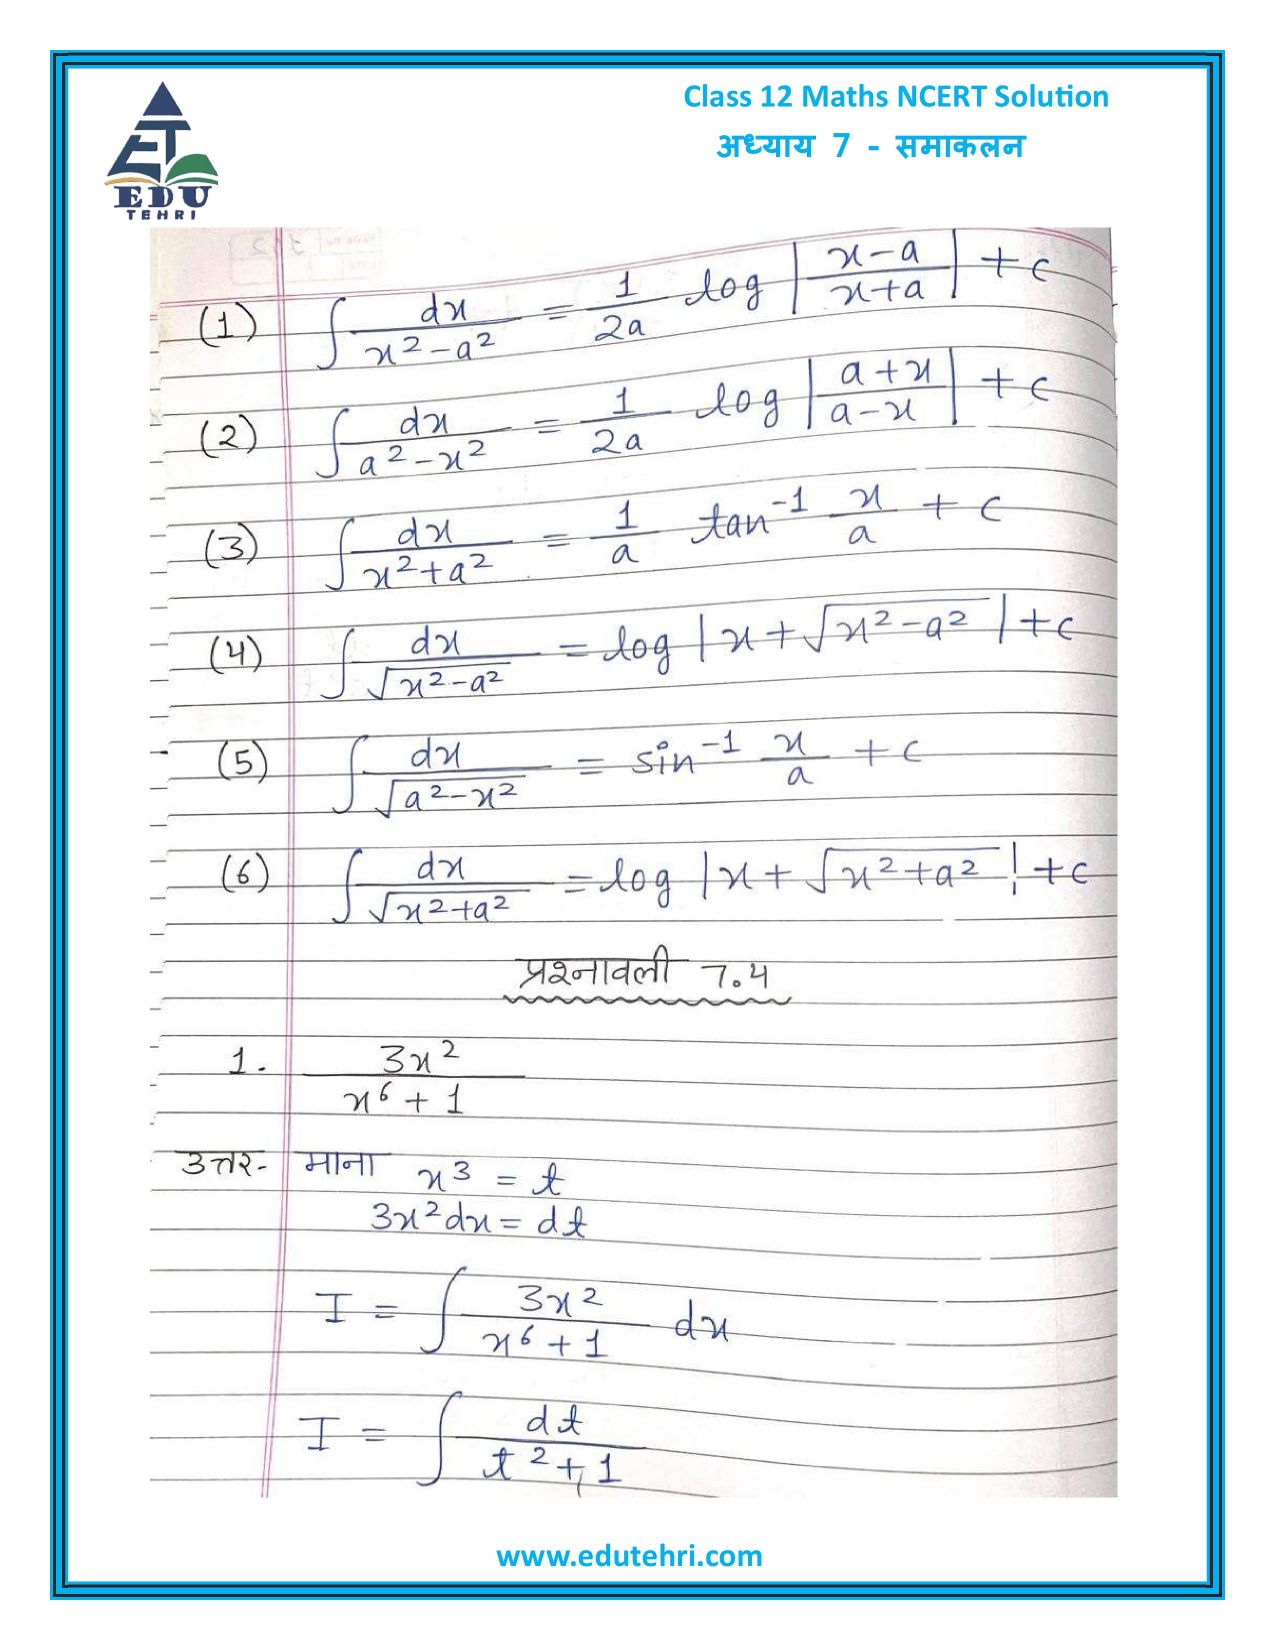 Class 12 Maths NCERT Solution
अध्याय 7 - समाकलन
ET
EDU
TEHRI
(1) ∫ dx / (x² - a²) = 1/2a log |(x - a)/(x + a)| + c
(2) ∫ dx / (a² - x²) = 1/2a log |(a + x)/(a - x)| + c
(3) ∫ dx / (x² + a²) = 1/a tan⁻¹ x/a + c
(4) ∫ dx / √(x² - a²) = log |x + √(x² - a²)| + c
(5) ∫ dx / √(a² - x²) = sin⁻¹ x/a + c
(6) ∫ dx / √(x² + a²) = log |x + √(x² + a²)| + c
प्रश्नावली 7.4
1. 3x² / (x⁶ + 1)
उत्तर- माना x³ = t
3x²dx = dt
I = ∫ 3x² / (x⁶ + 1) dx
I = ∫ dt / (t² + 1)
www.edutehri.com